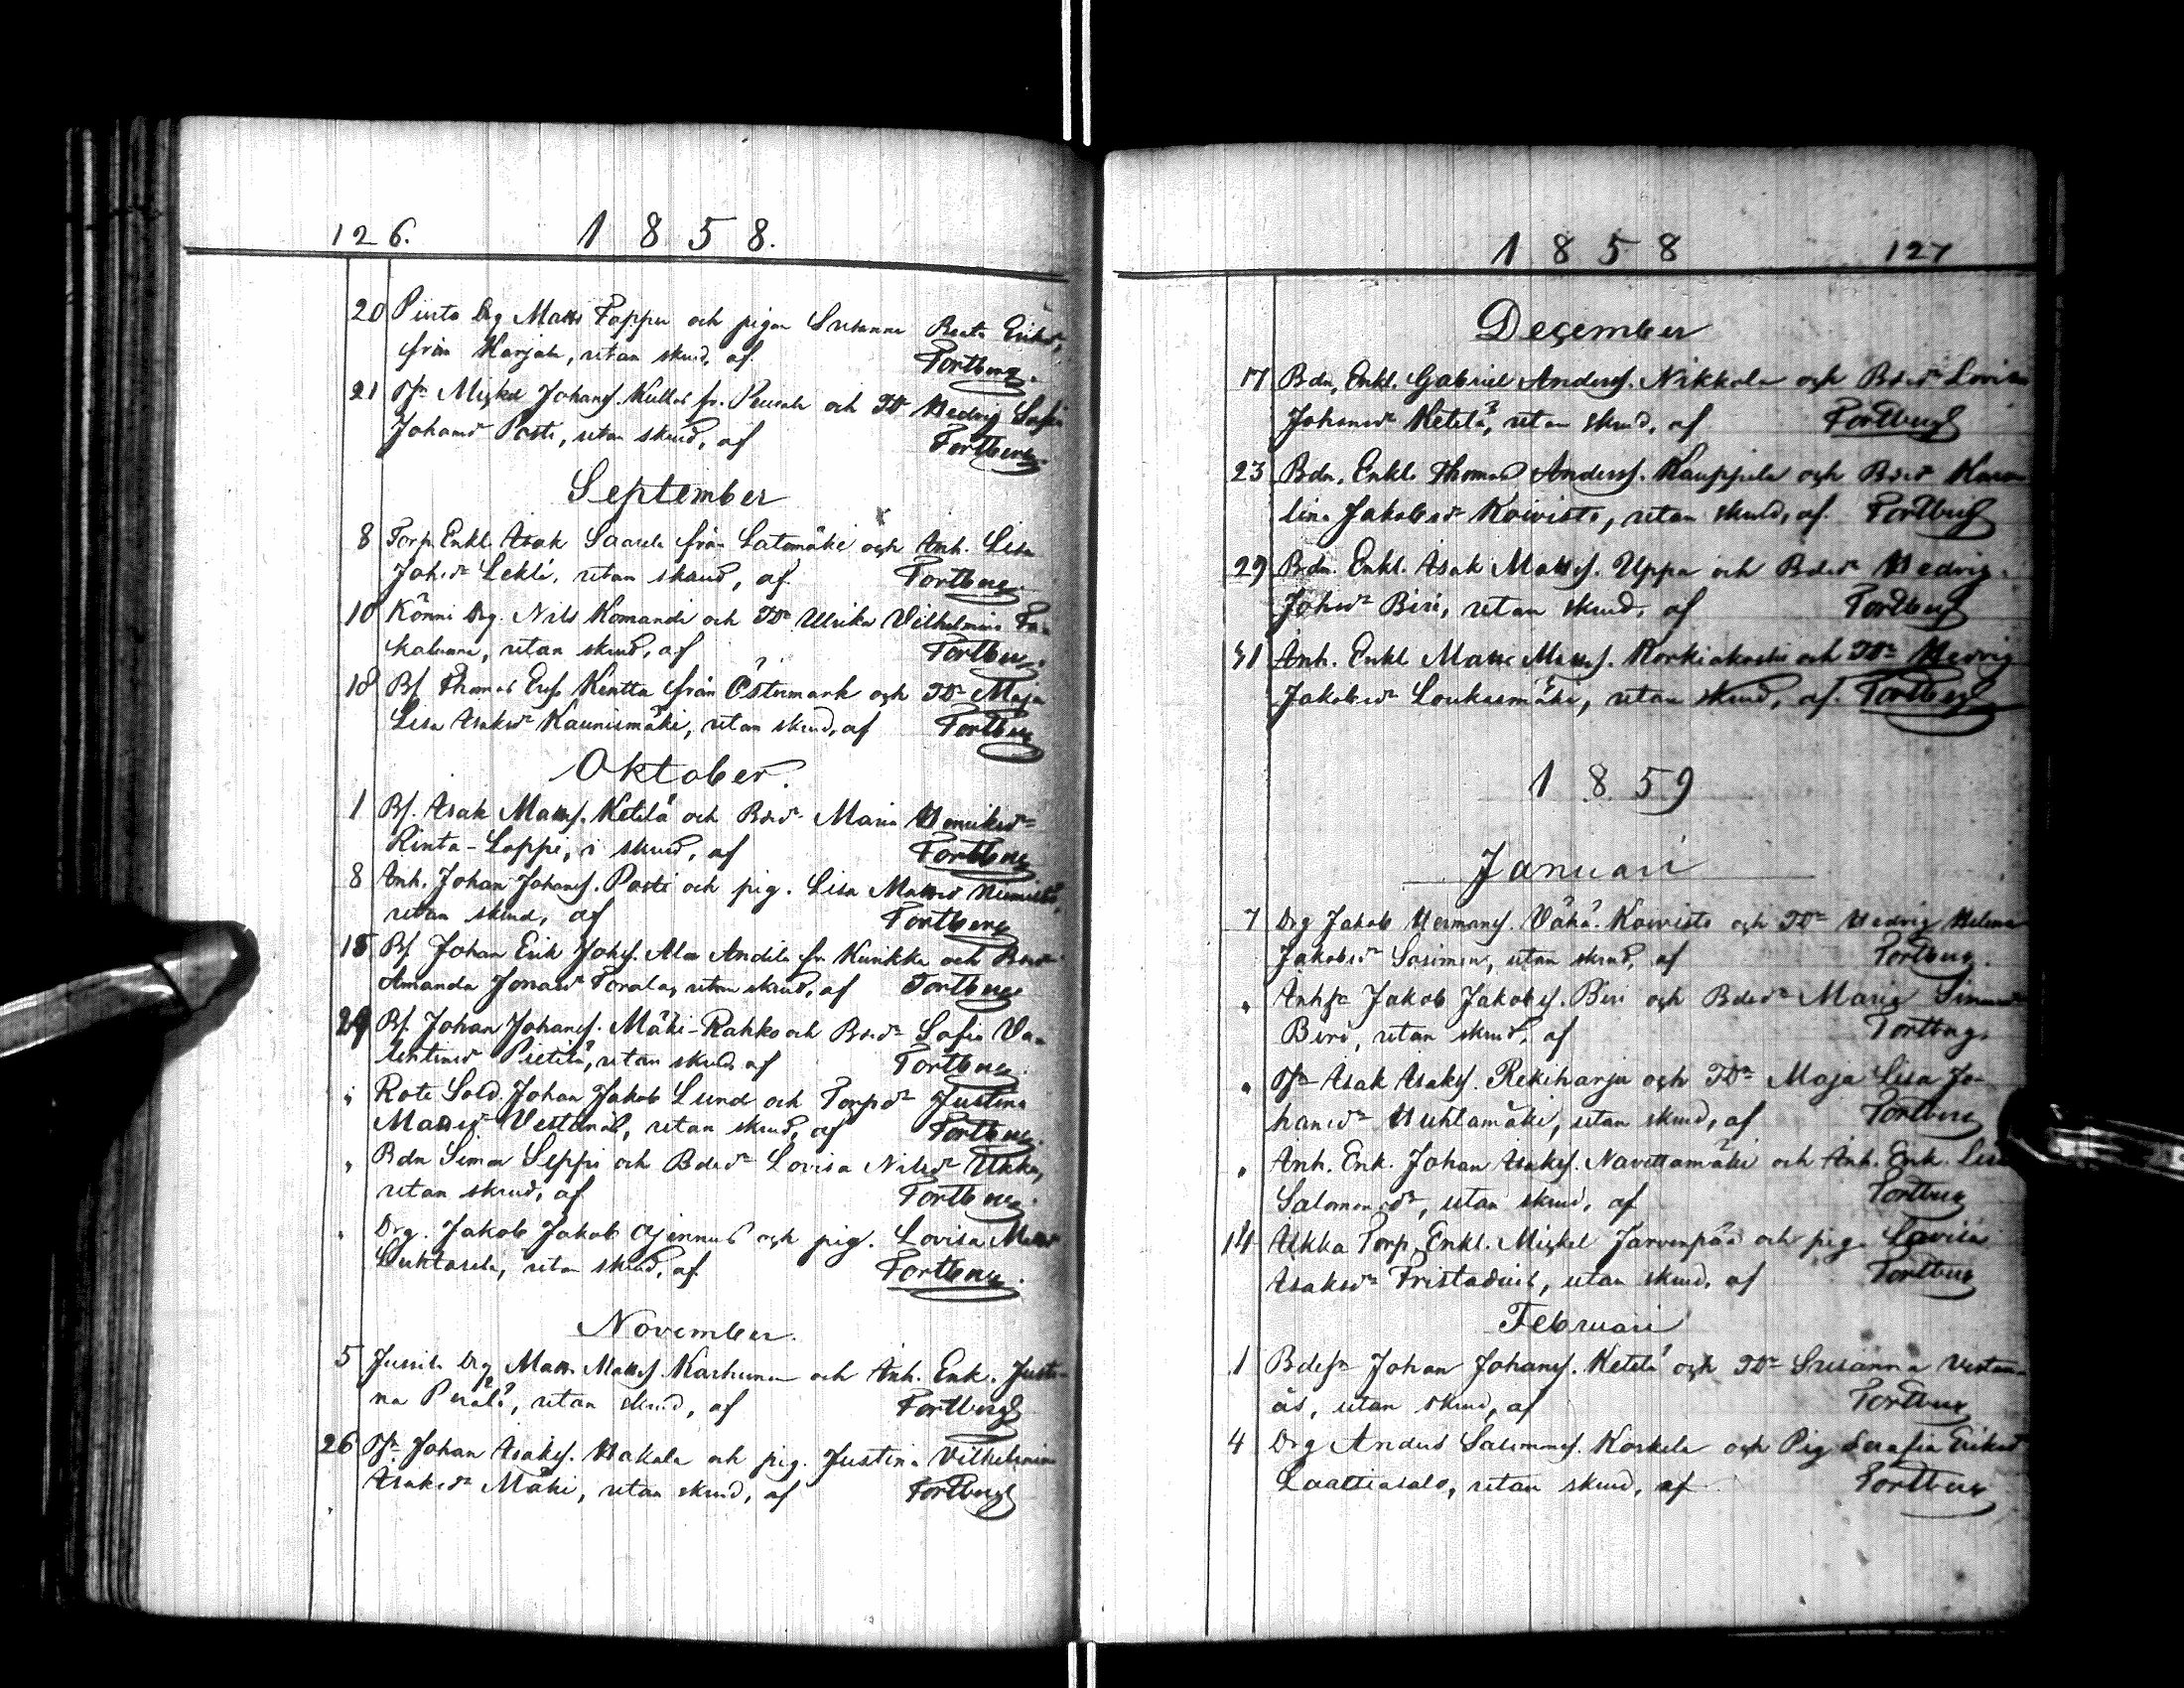 126. 1858.
20 Pinto Drg Matts Toppu och pigan Susanna Beata Eriksdr
från Karjala, utan skrud, af Tortberg.
21 Michel Johansf. Kullas fr. Peurala och TDr Hedvig Sofia
Johansdr Posti, utan skrud, af Tortberg.
September
8 Torp. Enkl. Isak Saarela från Satomäki och Inh. Lisa
Johsdr Lekli, utan skrud, af Tortberg.
10 Könni Drg. Nils Komandi och TDr Ulrika Vilhelmina
utan skrud, af Tortberg.
18 Bf Thomas Erssf Kentta från Östermark och TDr Maja
Lisa Isaksdr Kaunismäki, utan skrud, af Tortberg
Oktober.
1 Bf. Isak Mattsf. Ketelä och Bdsdr Maria Henriksdr
Rinta-Loppi, i skrud, af Tortberg
8 Inh. Johan Johansf. Posti och pig. Lisa Mattsdr
utan skrud, af Tortberg
15 Bf. Johan Erik Johsf. Ala Andila fr. Kurikka och Bdsdr
Amanda Jonasdr Torala, utan skrud, af Tortberg
29 Bf. Johan Johansf. Mäki-Rahko och Bdsdr Sofia Va-
lentinsdr Pietilä, utan skrud, af Tortberg.
Rote Sold. Johan Jakob Lund och Torpdr Justina
Mattsdr Vestenäs, utan skrud, af Tortberg.
" Bdn Simon Seppi och Bdsdr Lovisa Nilsdr Ukko,
utan skrud, af Tortberg.
" Drg. Jakob Jakob och pig. Lovisa Mattsdr
Luhtasela, utan skrud, af Tortberg.
November.
5 Jussila Drg Matts Mattsf. Karhunen och Inh. Enk. Justi-
na Perälä, utan skrud, af Tortberg
26 Johan Isaksf. Hakala och pig. Justina Vilhelmina
Isaksdr Mäki, utan skrud, af Tortberg
1858 127
December
17 Bdn, Enkl. Gabriel Andersf. Nikkola och Bdsdr Lovisa
Johansdr Ketelä, utan skrud, af Tortberg
23 Bdn, Enkl. Thomas Andersf. Kauppila och Bdsdr Karo-
lina Jakobsdr Koivisto, utan skrud, af Tortberg
29 Bdn. Enkl. Isak Mattsf. Uppa och Bdsdr Hedvig
Johsdr Biri, utan skrud, af Tortberg
31 Inh. Enkl Matts Mattsf. Korkiakoski och TDr Hedvig
Jakobsdr Loukusmäki, utan skrud, af Tortberg
1859
Januari
7 Drg Jakob Hermansf. Vähä-Koivisto och TDr Hedvig Helena
Jakobsdr Sosimon, utan skrud, af Tortberg.
" Inhsr Jakob Jakobsf. Biri och Bdsdr Maria Simonsdr
Biri, utan skrud, af Tortberg.
" Isak Isaksf. Rekiharju och TDr Maja Lisa Jo-
hansdr Huhtamäki, utan skrud, af Tortberg
" Inh. Enk. Johan Isaksf. Navettamäki och Inh. Enk. Lisa
Salomonsdr, utan skrud, af Tortberg
14 Ukka Torp. Enkl. Michel Jarvenpää och pig. Lovisa
Isaksdr Fristadius, utan skrud, af Tortberg
Februari
1 Bdesr Johan Johansf. Ketelä och TDr Susanna Vesten-
äs, utan skrud, af Tortberg
4 Drg Anders Salomonsf. Koskela och Pig Serafia Eriksdr
Laattiasalo, utan skrud, af Tortberg